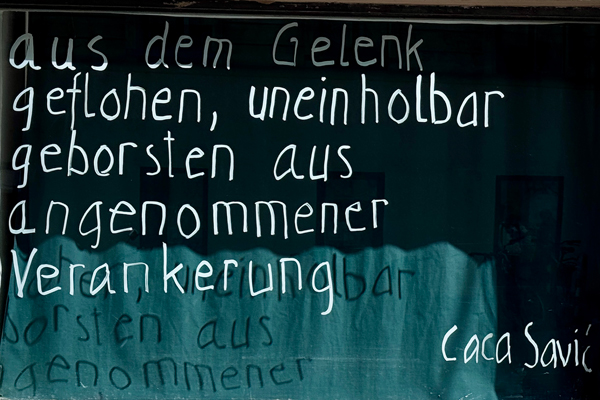 aus dem Gelenk
geflohen, uneinholbar
geborsten aus
angenommener
Verankerung
Caca Savić